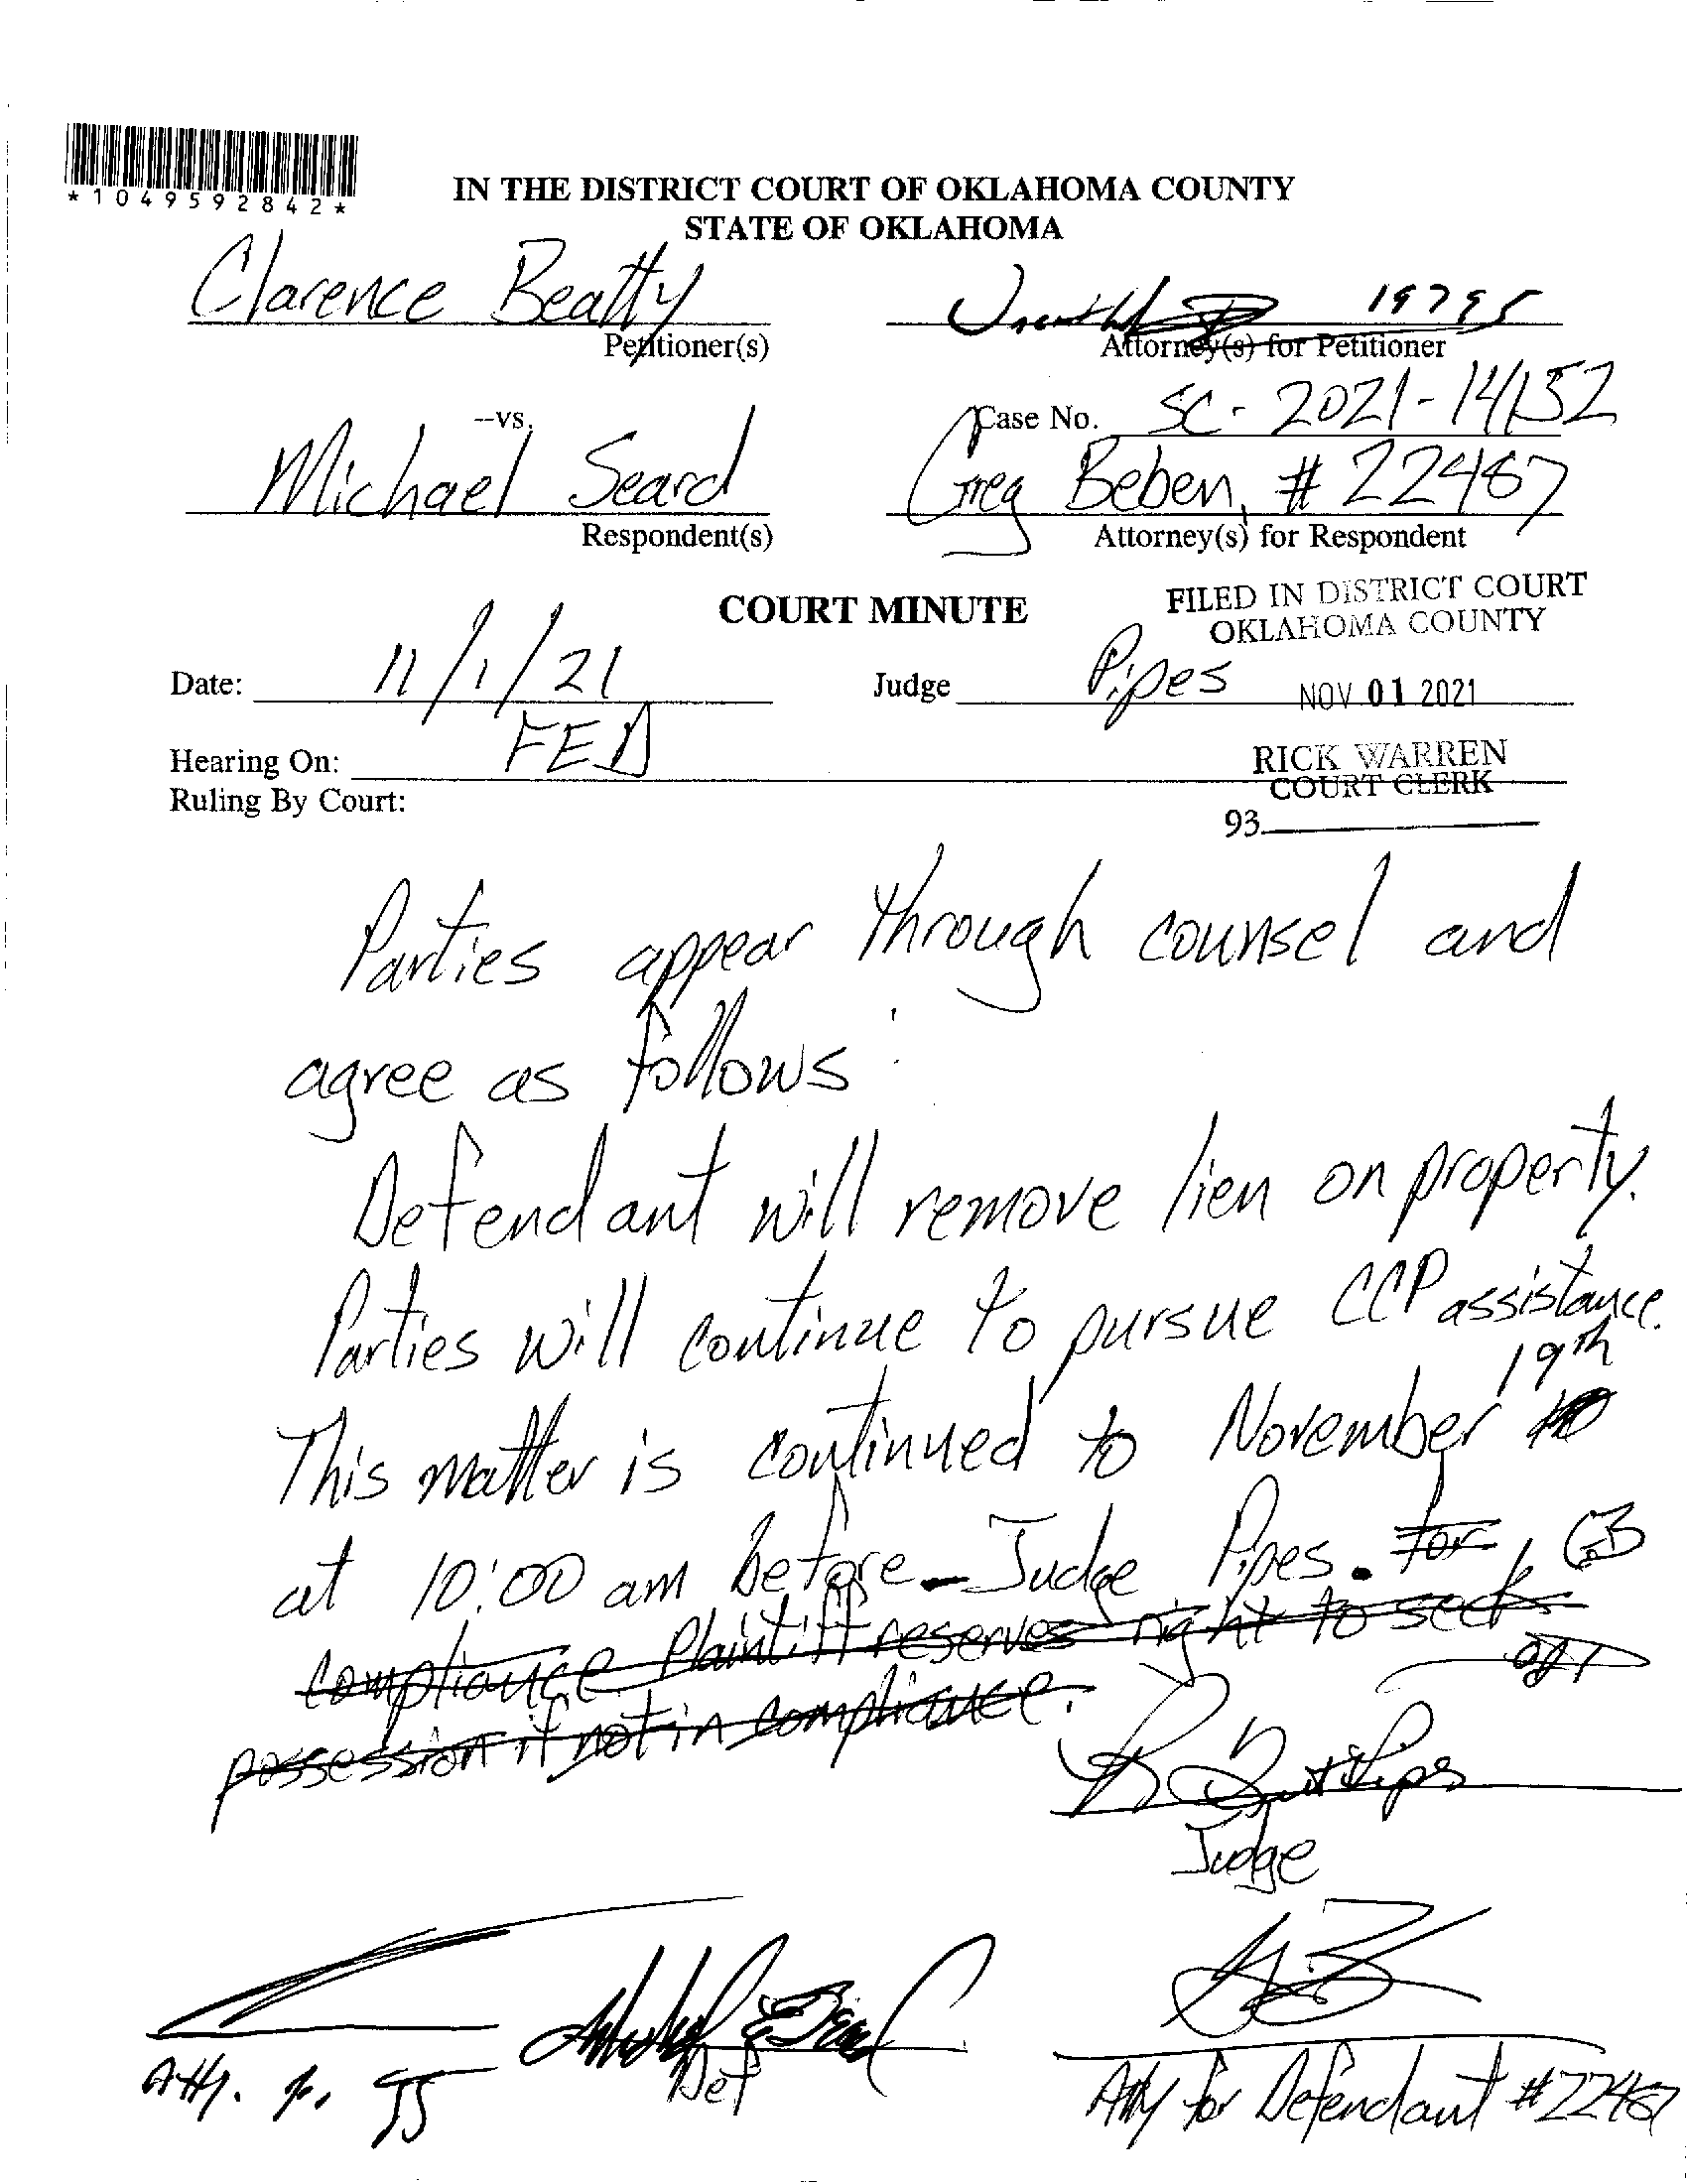 *1049592842*
IN THE DISTRICT COURT OF OKLAHOMA COUNTY
STATE OF OKLAHOMA
Clarence Beatty
19795
Petitioner(s)
Attorney(s) for Petitioner
--vs.
Case No. SC-2021-14152
Michael Seard
Greg Beben, # 22487
Respondent(s)
Attorney(s) for Respondent
COURT MINUTE
FILED IN DISTRICT COURT
OKLAHOMA COUNTY
Date: 11/1/21
Judge Pipes
NOV 01 2021
Hearing On: FED
RICK WARREN
COURT CLERK
Ruling By Court:
93
Parties appear through counsel and
agree as follows:
Defendant will remove lien on property.
Parties will continue to pursue CCP assistance.
19th
This matter is continued to November
at 10:00 am before Judge Pipes. for GB
compliance Plaintiff reserves right to seek
possession if not in compliance.
Judge
Atty. for
Def
Atty for Defendant #22487